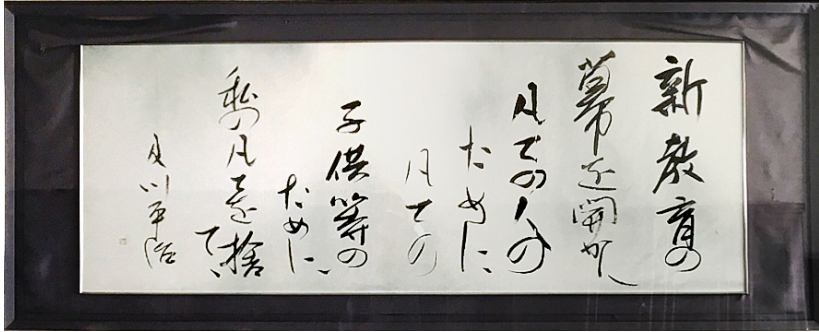 新教育の
幕を開かん
凡ての人の
ために
凡ての
子供等の
ために
私の凡てを捨
てゝ
及川平治